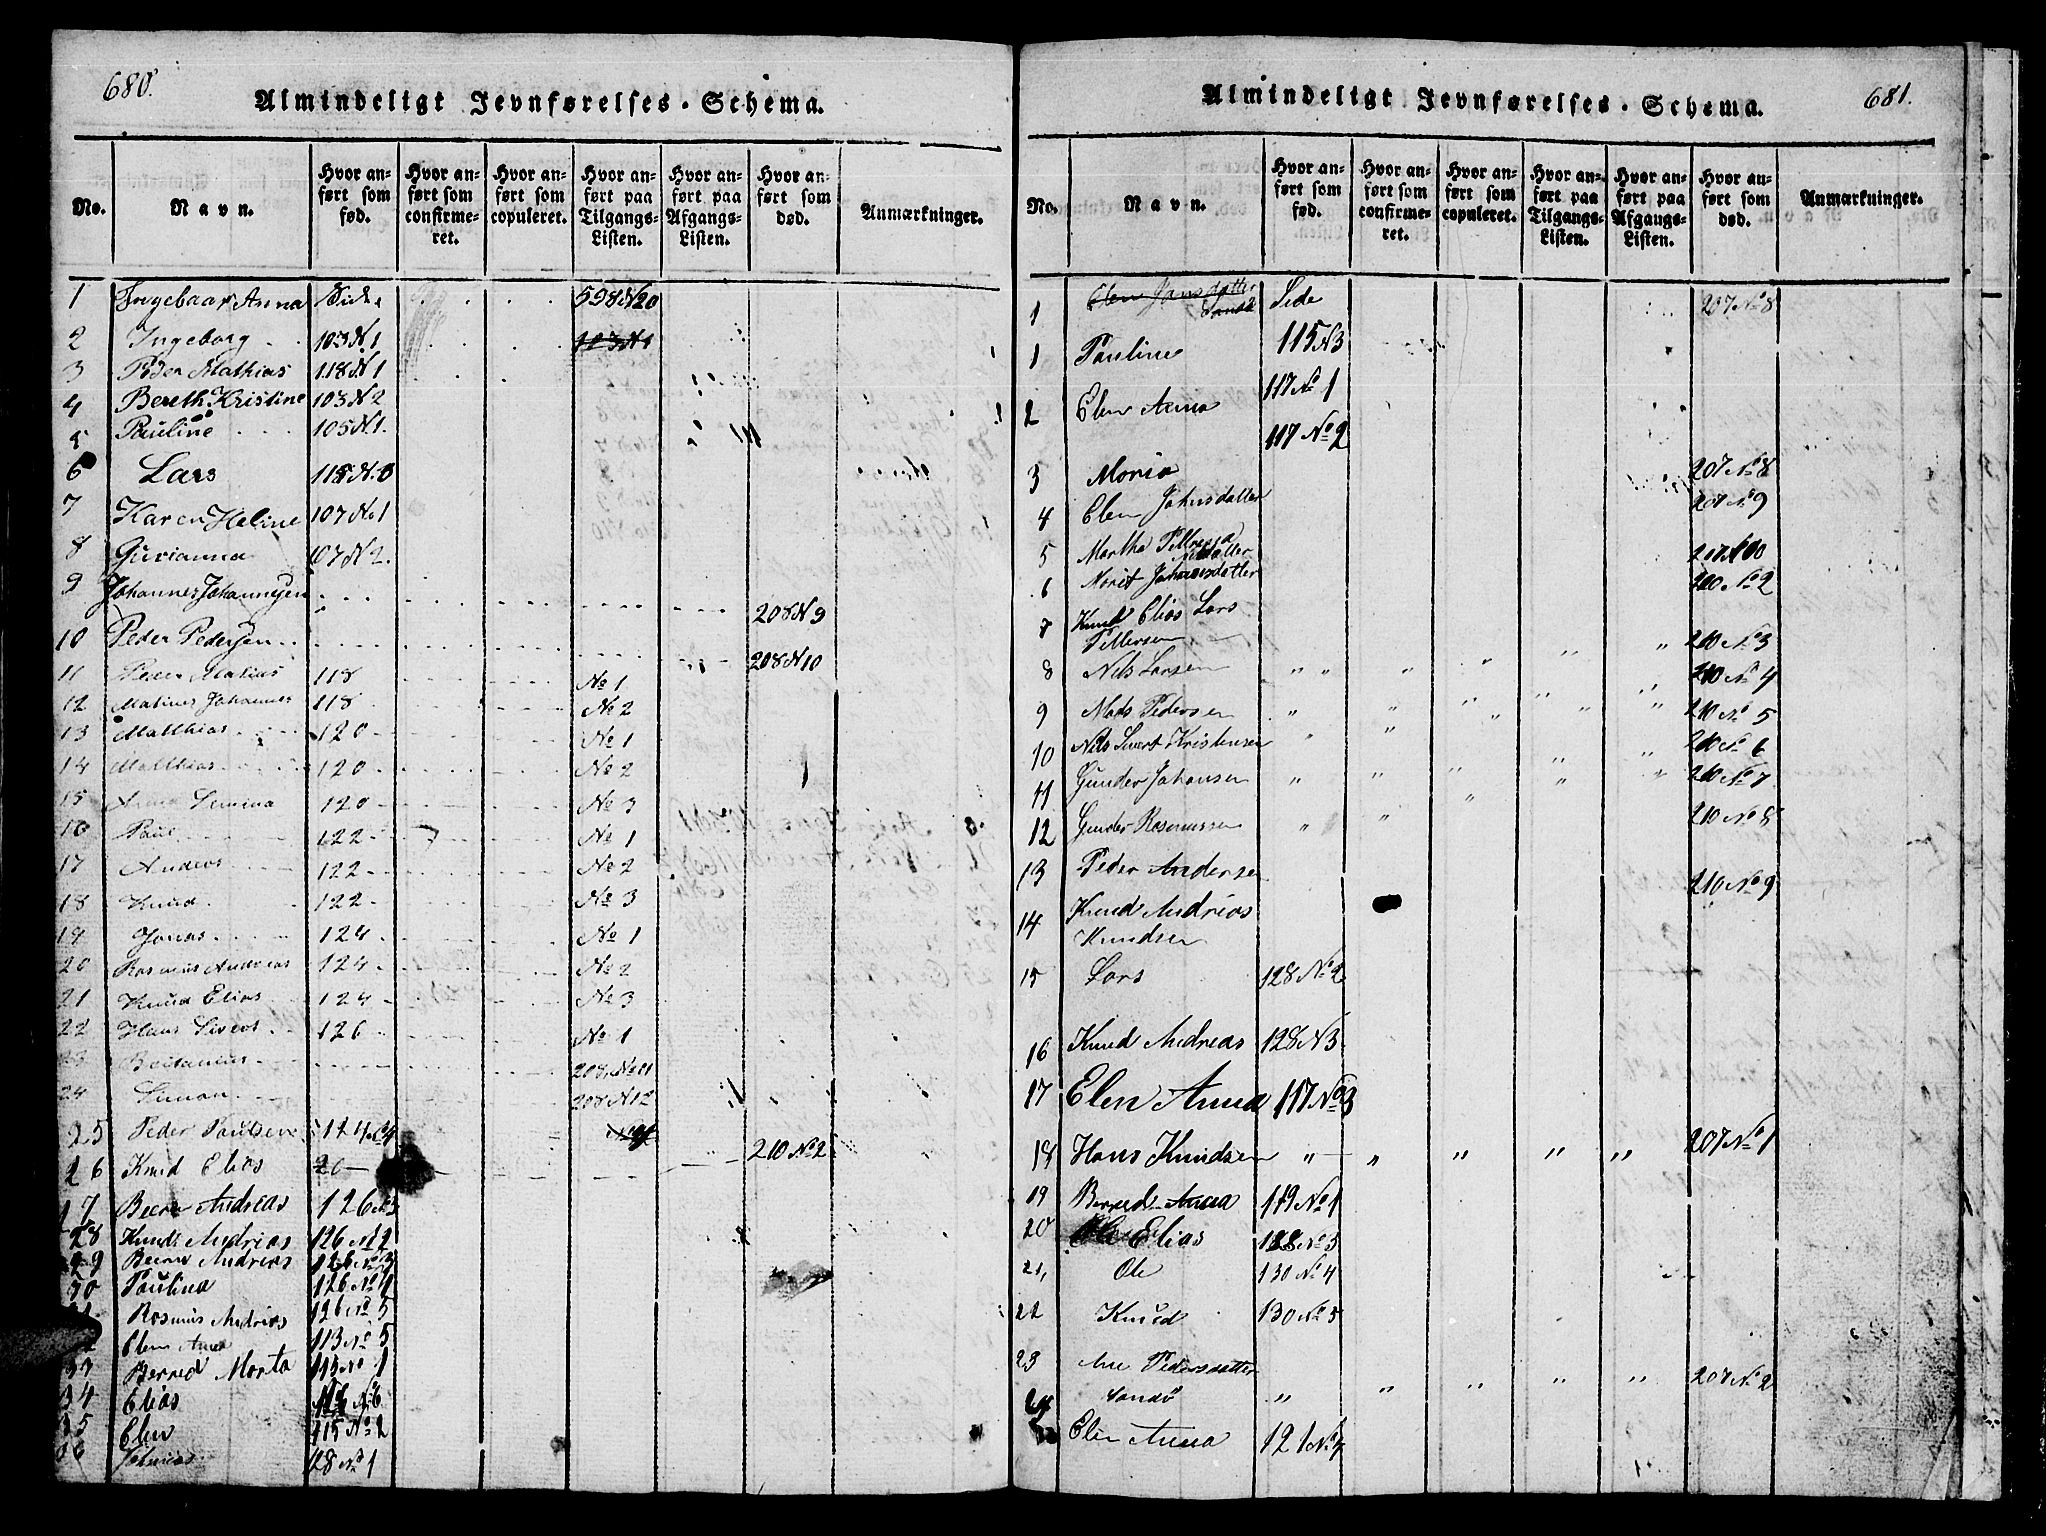 680.
Almindeligt Jevnførelses-Schema.
No. Navn. Hvor anført som fød. Hvor anført som confirmeret. Hvor anført som copuleret. Hvor anført paa Tilgangs-Listen. Hvor anført paa Afgangs-Listen. Hvor anført som død. Anmærkninger.
1 Ingebaar Anna Side 598 N20
2 Ingeborg 103 N1 103 N1
3 Peder Mathias 118 N1
4 Bereth Kristine 103 N2
5 Pauline 105 N1.
6 Lars N.3
7 Karen Heline 107 No 1
8 Gurianna 107 N2.
9 Johannes Johannesen 208 N9
10 Peder Pedersen 208 N10
11 Peder Matias 118 No 1
12 Matias Johannes 118 No 2
13 Matthias 120 No 1
14 Matthias 120 No 2
15 Anna 120 No 3
16 Paul 122 No 1
17 Andreas 122 No 2
18 Knud 122 No 3
19 Jonas 124 No 1
20 Rasmus Andreas 124 No 2
21 Knud Elias 124 No 3
22 Hans Sivert 126 No 1
23 208, No 11
24 Simon 208 N12
25 Peder Paulsen 124 No 4
26 Knud Elias 210 No 2
27 Andreas 126
28 Knud Andrias 126 No 2
29 Andreas 126 No 3
30 Paulina 126 No 4
Rasmus Andrias 126 No 5
Elen Anna 113 No 5
33 Berred Marta 113 No 1
34 Elias
35 Elen 115 No 2
36 128 No 1
681.
Almindeligt Jevnførelses-Schema.
No. Navn. Hvor anført som fød. Hvor anført som confirmeret. Hvor anført som copuleret. Hvor anført paa Tilgangs-Listen. Hvor anført paa Afgangs-Listen. Hvor anført som død. Anmærkninger.
1 Elen Jansdatter Sandö Side 207 No 8
1 Pauline 115 N3
2 Elen Anna 117 No 1
117 No 2
3 Maria 207 No 8
4 Elen Johnsdatter 207 No 9
5 Martha
6 Johansdatter 210 No 2
7 Knud Elias Lars
Pettersen 210 No 3
8 Nils Larsen " " " " " " 210 No 4
9 Mads Pedersen " " " " " 210 No 5
10 Nils Sivert Kristensen " " " " " 210 No 6
11 Gunder Johansen " " " " " 210 No 7
12 Gunder Rasmussen " " " 210 No 8
13 Peder Andersen 210 No 9
14 Knud Andrias
Knudsen
15 Lars 128 No 2
16 Knud Andreas 128 N3
17 Elen Anna 117 No 3
18 Hans Knudsen " " " " " 207 No 1
19 Berred Anna 119 No 1
20 Ole Elias No 3
21, Ole 130 No 4
22 Knud 130 No 5
23 Ane Pedersdatter 207 No 2
Sandö " " " " "
Elen Anna 121 No 4